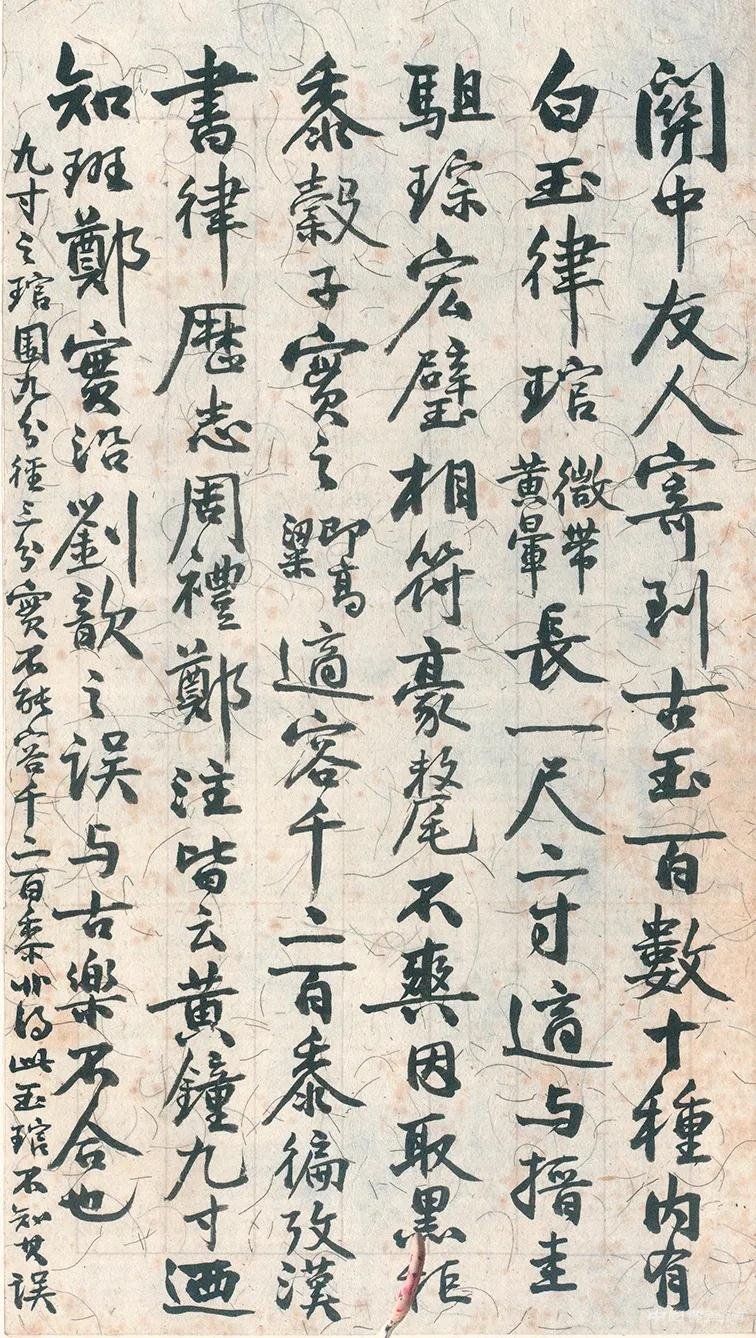 關中友人寄到古玉百數十種內有
白玉律琯微帶黃暈長一尺二寸適与搢圭
駔琮宏璧相符豪氂不爽因取黑秬
黍穀子實之即高粱適容千二百黍徧攷漢
書律歷志周禮鄭注皆云黃鐘九寸迺
知班鄭實沿劉歆之誤与古樂不合也
九寸之琯圍九分徑三分實不能容千二百黍非得此玉琯不知其誤